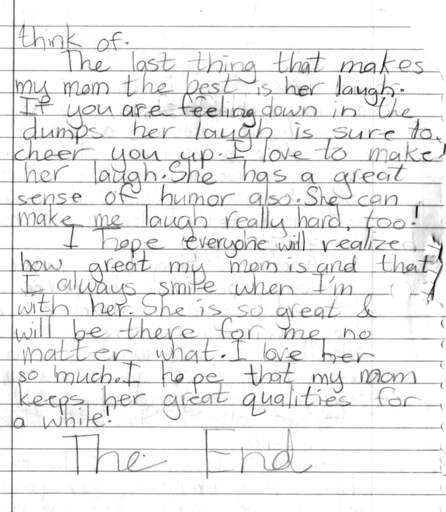 think of.
The last thing that makes
my mom the best is her laugh.
If you are feeling down in the
dumps her laugh is sure to
cheer you up. I love to make
her laugh. She has a great
sense of humor also. She can
make me laugh really hard, too!
I hope everyone will realize
how great my mom is and that
I always smile when I'm
with her. She is so great &
will be there for me no
matter what. I love her
so much. I hope that my mom
keeps her great qualities for
a while!
The End